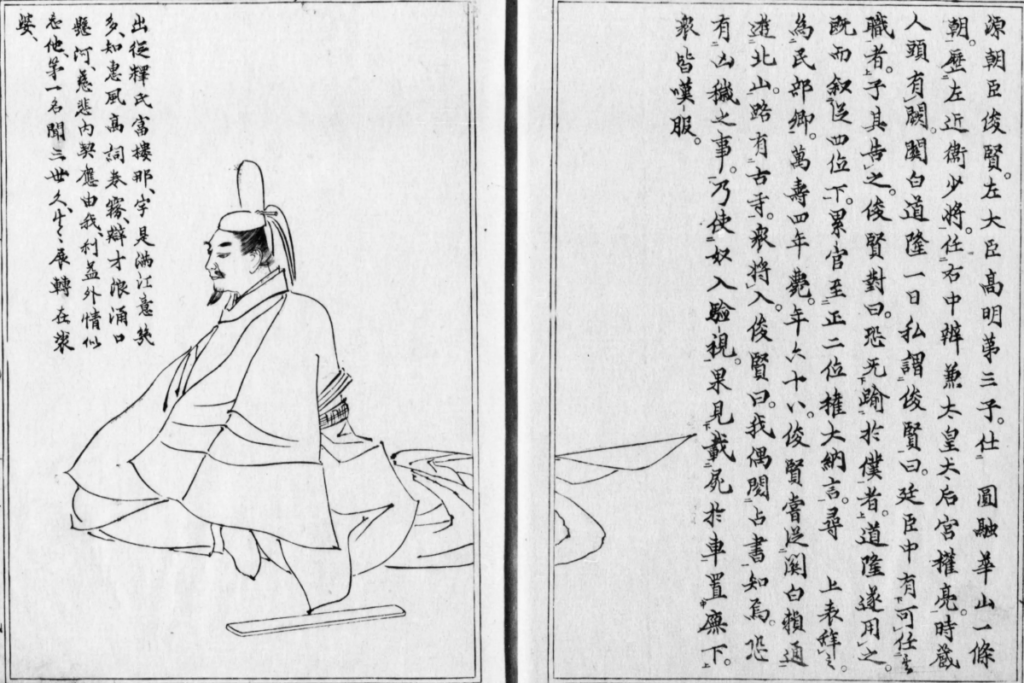 源朝臣俊賢。左大臣高明第三子。仕　圓融華山一條
朝。歷左近衛少將。任右中辨兼太皇太后宮權亮。時藏
人頭有闕。關白道隆一日私謂俊賢曰。廷臣中有可任
職者。子其告之。俊賢對曰。恐无踰於僕者。道隆遂用之。
既而叙從四位下。累官至正二位權大納言。尋　上表辭
為民部卿。萬壽四年薨。年六十八。俊賢嘗從關白賴通
遊北山。路有古寺。衆將入。俊賢曰。我偶閱占書知焉。恐
有凶穢之事。乃使奴入驗視。果見載屍於車置廡下。
衆皆嘆服。
出従釋氏富楼那、字是満江意気
多、知恵風高詞巻霧、辯才浪涌口
懸河、慈悲内契應由我、利益外情似
忘他、第一名聞三世久、生々展轉在裟
婆、